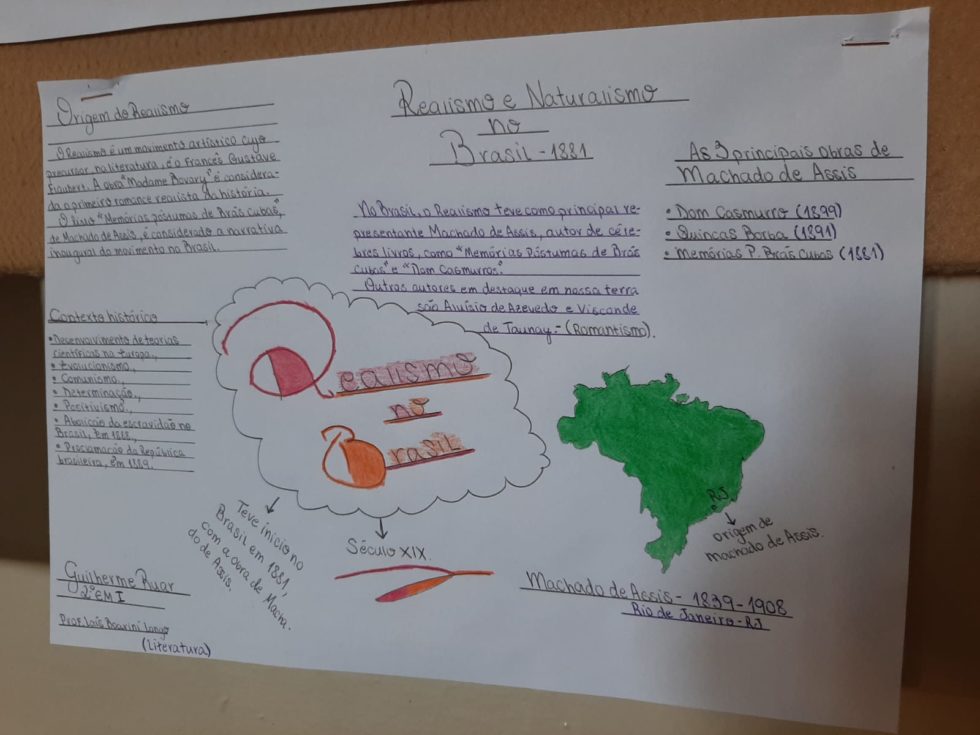 Origem do Realismo
O Realismo é um movimento artístico cujo
precursor, na literatura, é o Francês Gustave
Flaubert. A obra "Madame Bovary" é considera-
da o primeiro romance realista da história.
O livro "Memórias póstumas de Brás Cubas",
de Machado de Assis, é considerado a narrativa
inaugural do movimento no Brasil.
Realismo e Naturalismo
no
Brasil - 1881
No Brasil, o Realismo teve como principal re-
presentante Machado de Assis, autor de céle-
bres livros, como "Memórias Póstumas de Brás
Cubas" e "Dom Casmurros".
Outros autores em destaque em nossa terra
são Aluísio de Azevedo e Visconde
de Taunay. - (Romantismo).
As 3 principais obras de
Machado de Assis
• Dom Casmurro (1899)
• Quincas Borba (1891)
• Memórias P. Brás Cubas (1881)
Contexto histórico
• Desenvolvimento de teorias
científicas na Europa.,
• Evolucionismo.,
• Comunismo.,
• Determinação.,
• Positivismo.,
• Abolição da escravidão no
Brasil, em 1888.,
• Proclamação da República
brasileira, em 1889.
Realismo
no
Brasil
Teve início no
Brasil em 1881,
com a obra de Macha-
do de Assis.
Século XIX.
RJ
origem de
machado de Assis.
Machado de Assis - 1839-1908
Rio de Janeiro - RJ
Guilherme Ruar
2º EM I
Prof. Laís
(Literatura)